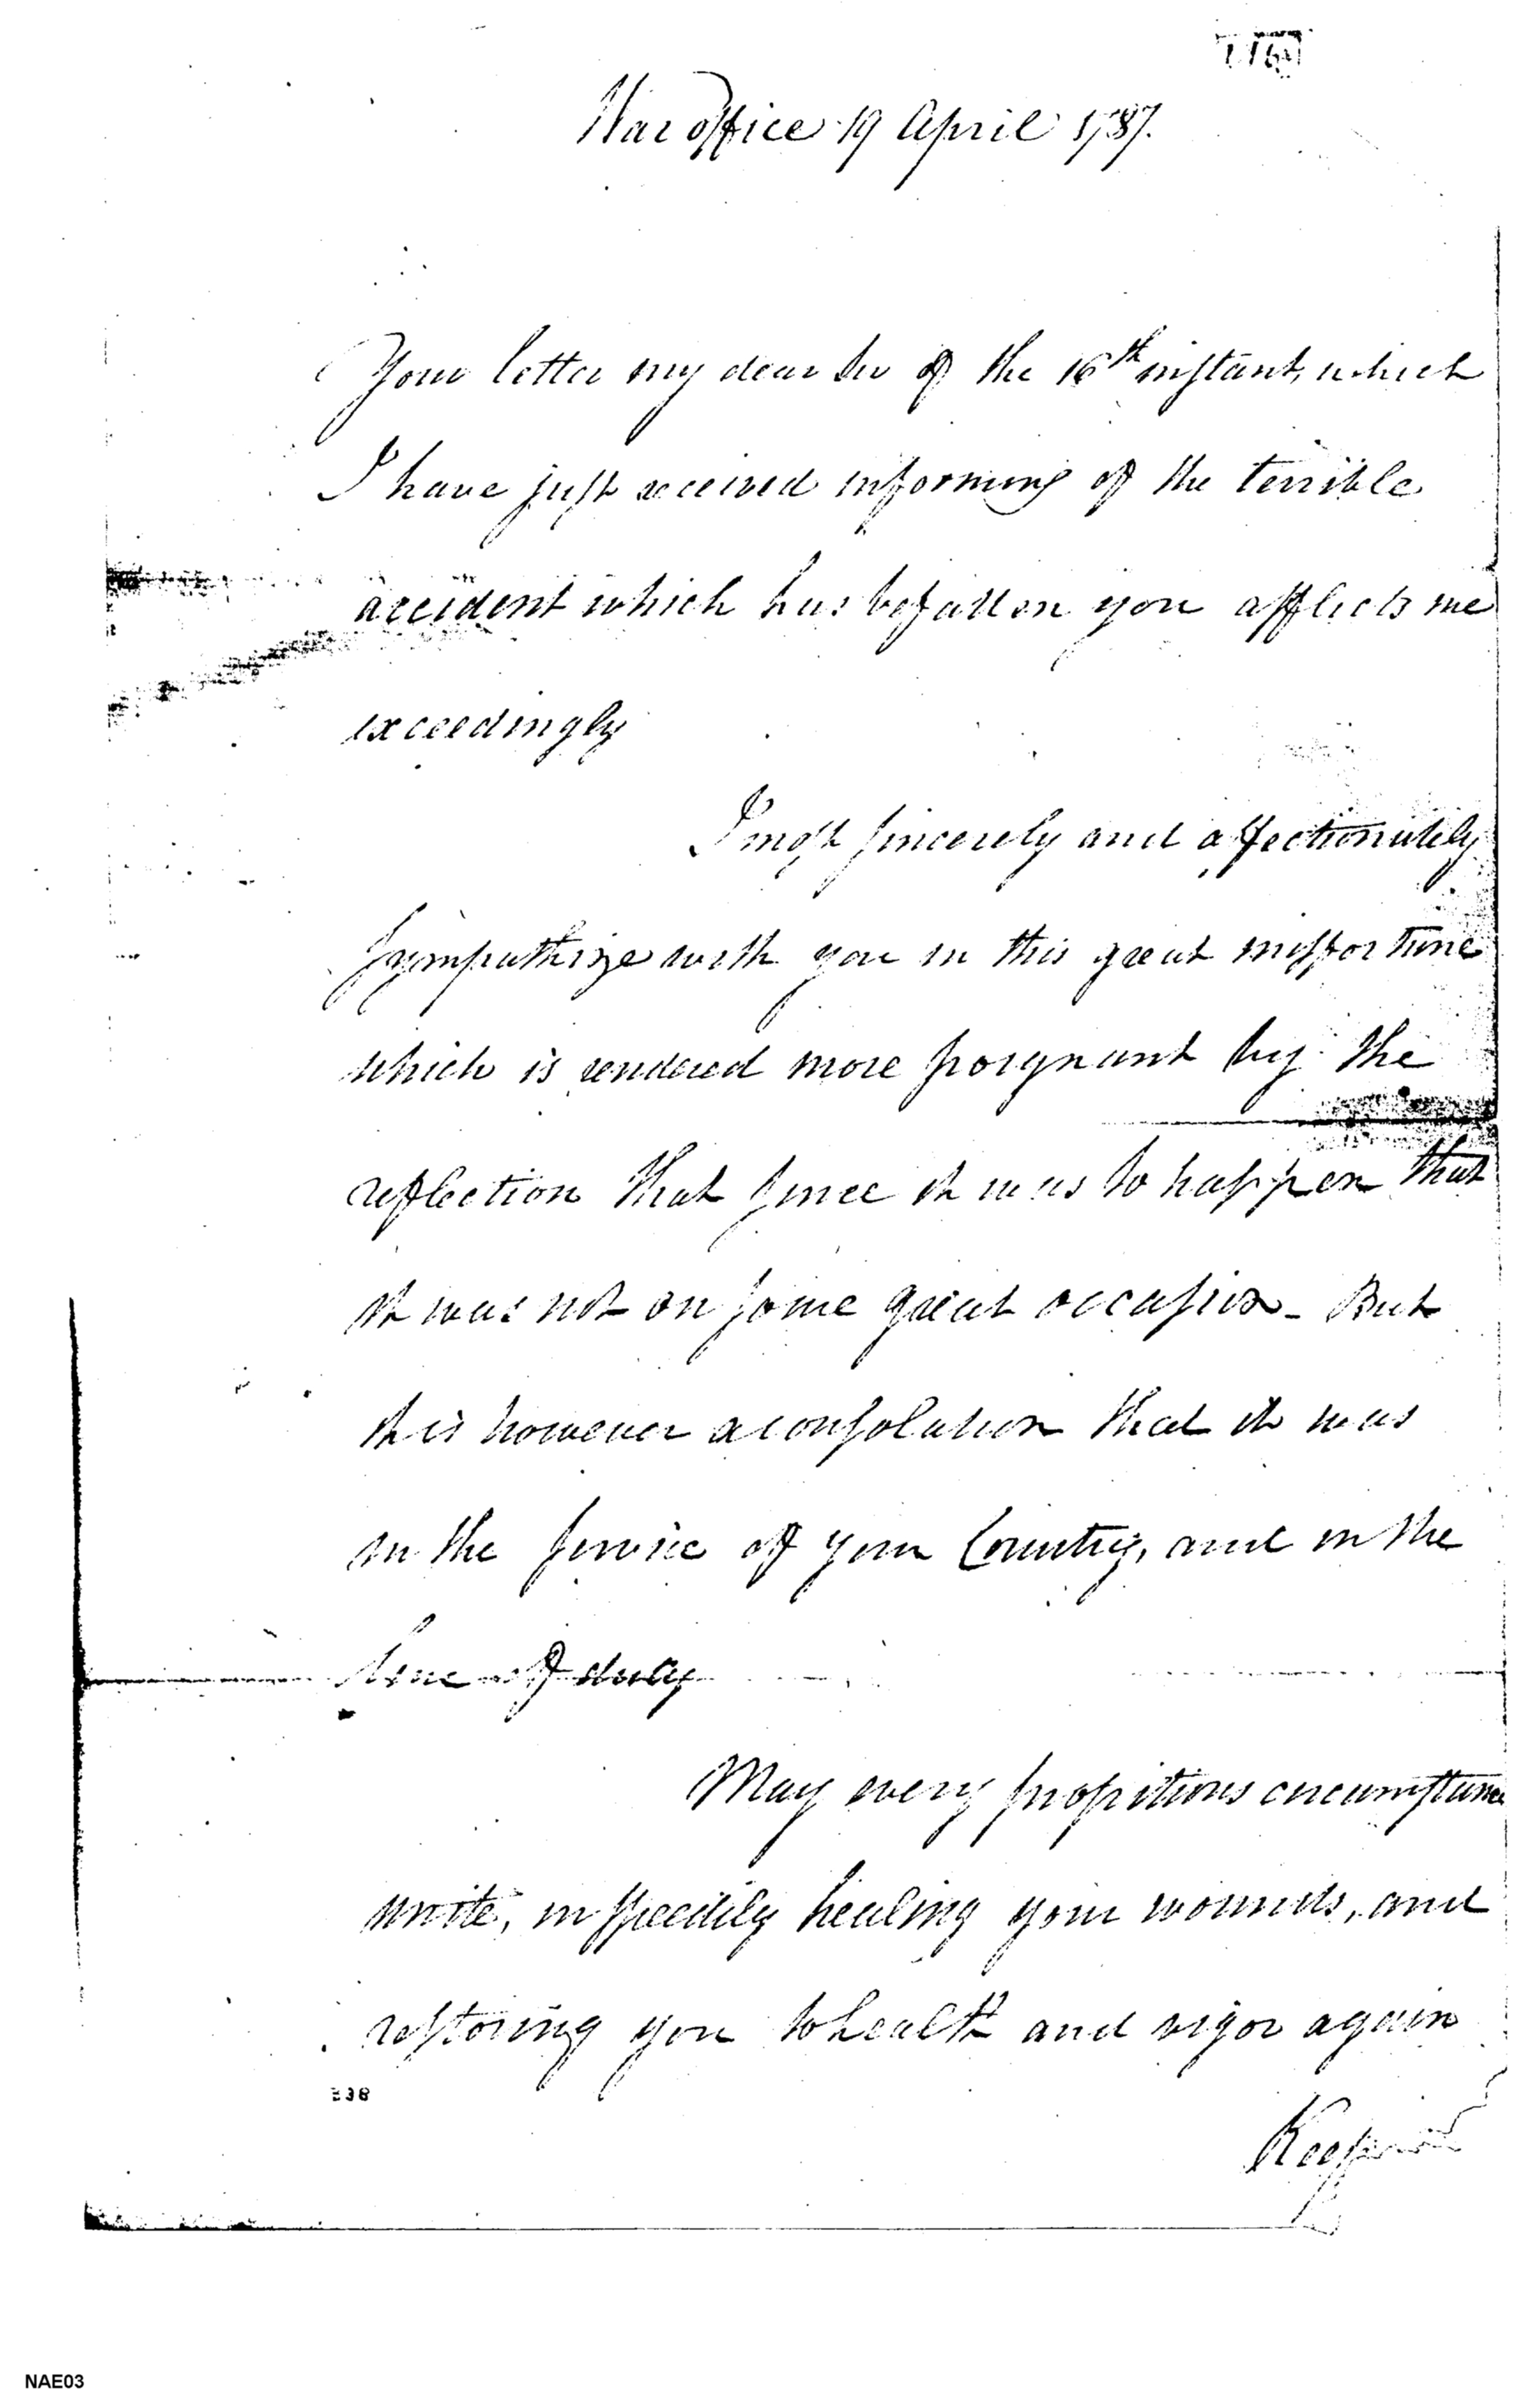 War office 19 April 1787.
Your letter my dear Sir of the 16th instant, which
I have just received informing of the terrible
accident which has befallen you afflicts me
exceedingly
I most sincerely and affectionately
sympathize with you in this great misfortune
which is rendered more poignant by the
reflection that since it was to happen that
it was not on some great occasion - But
it is however a consolation that it was
in the service of your Country, and in the
line of duty
May every propitious circumstance
unite, in speedily healing your wounds, and
restoring you to health and vigor again
338
NAE03